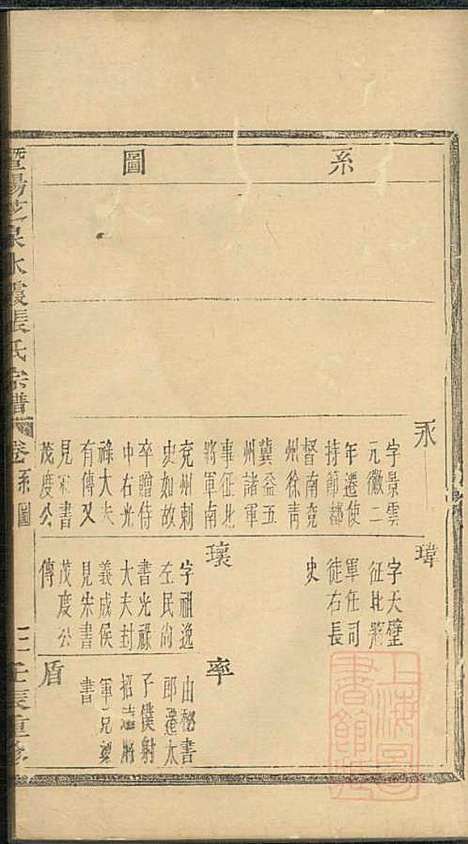 系圖
永
字景雲
元徽二
年遷使
持節都
督南兗
州徐青
冀益五
州諸軍
事征北
將軍南
兗州刺
史如故
卒贈侍
中右光
祿大夫
有傳又
見宋書
茂度公
傳
瑋
字天璧
征北將
軍任司
徒右長
史
瓌
字祖逸
左民尚
書光祿
大夫封
義成侯
見宋書
茂度公
率
山秘書
郎遷太
子僕射
招遠將
軍兄稷
書
盾
暨陽芝泉水霞張氏宗譜
卷 系圖
三 壬辰重修
上海圖書館藏